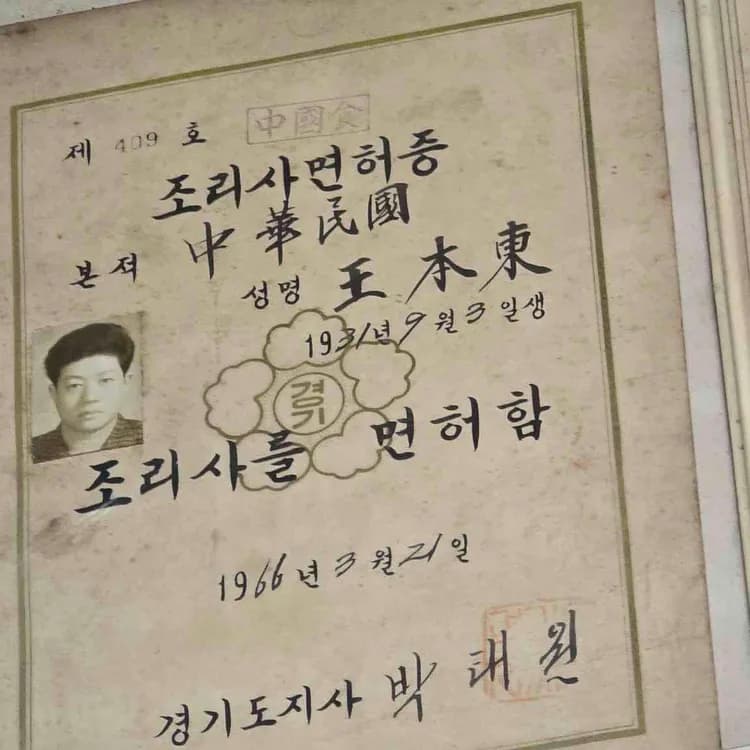 제 409 호 中國食
조리사면허증
본적 中華民國
성명 王本東
1931年9월3일생
경기
조리사를 면허함
1966년 3월 21일
경기도지사 박태원